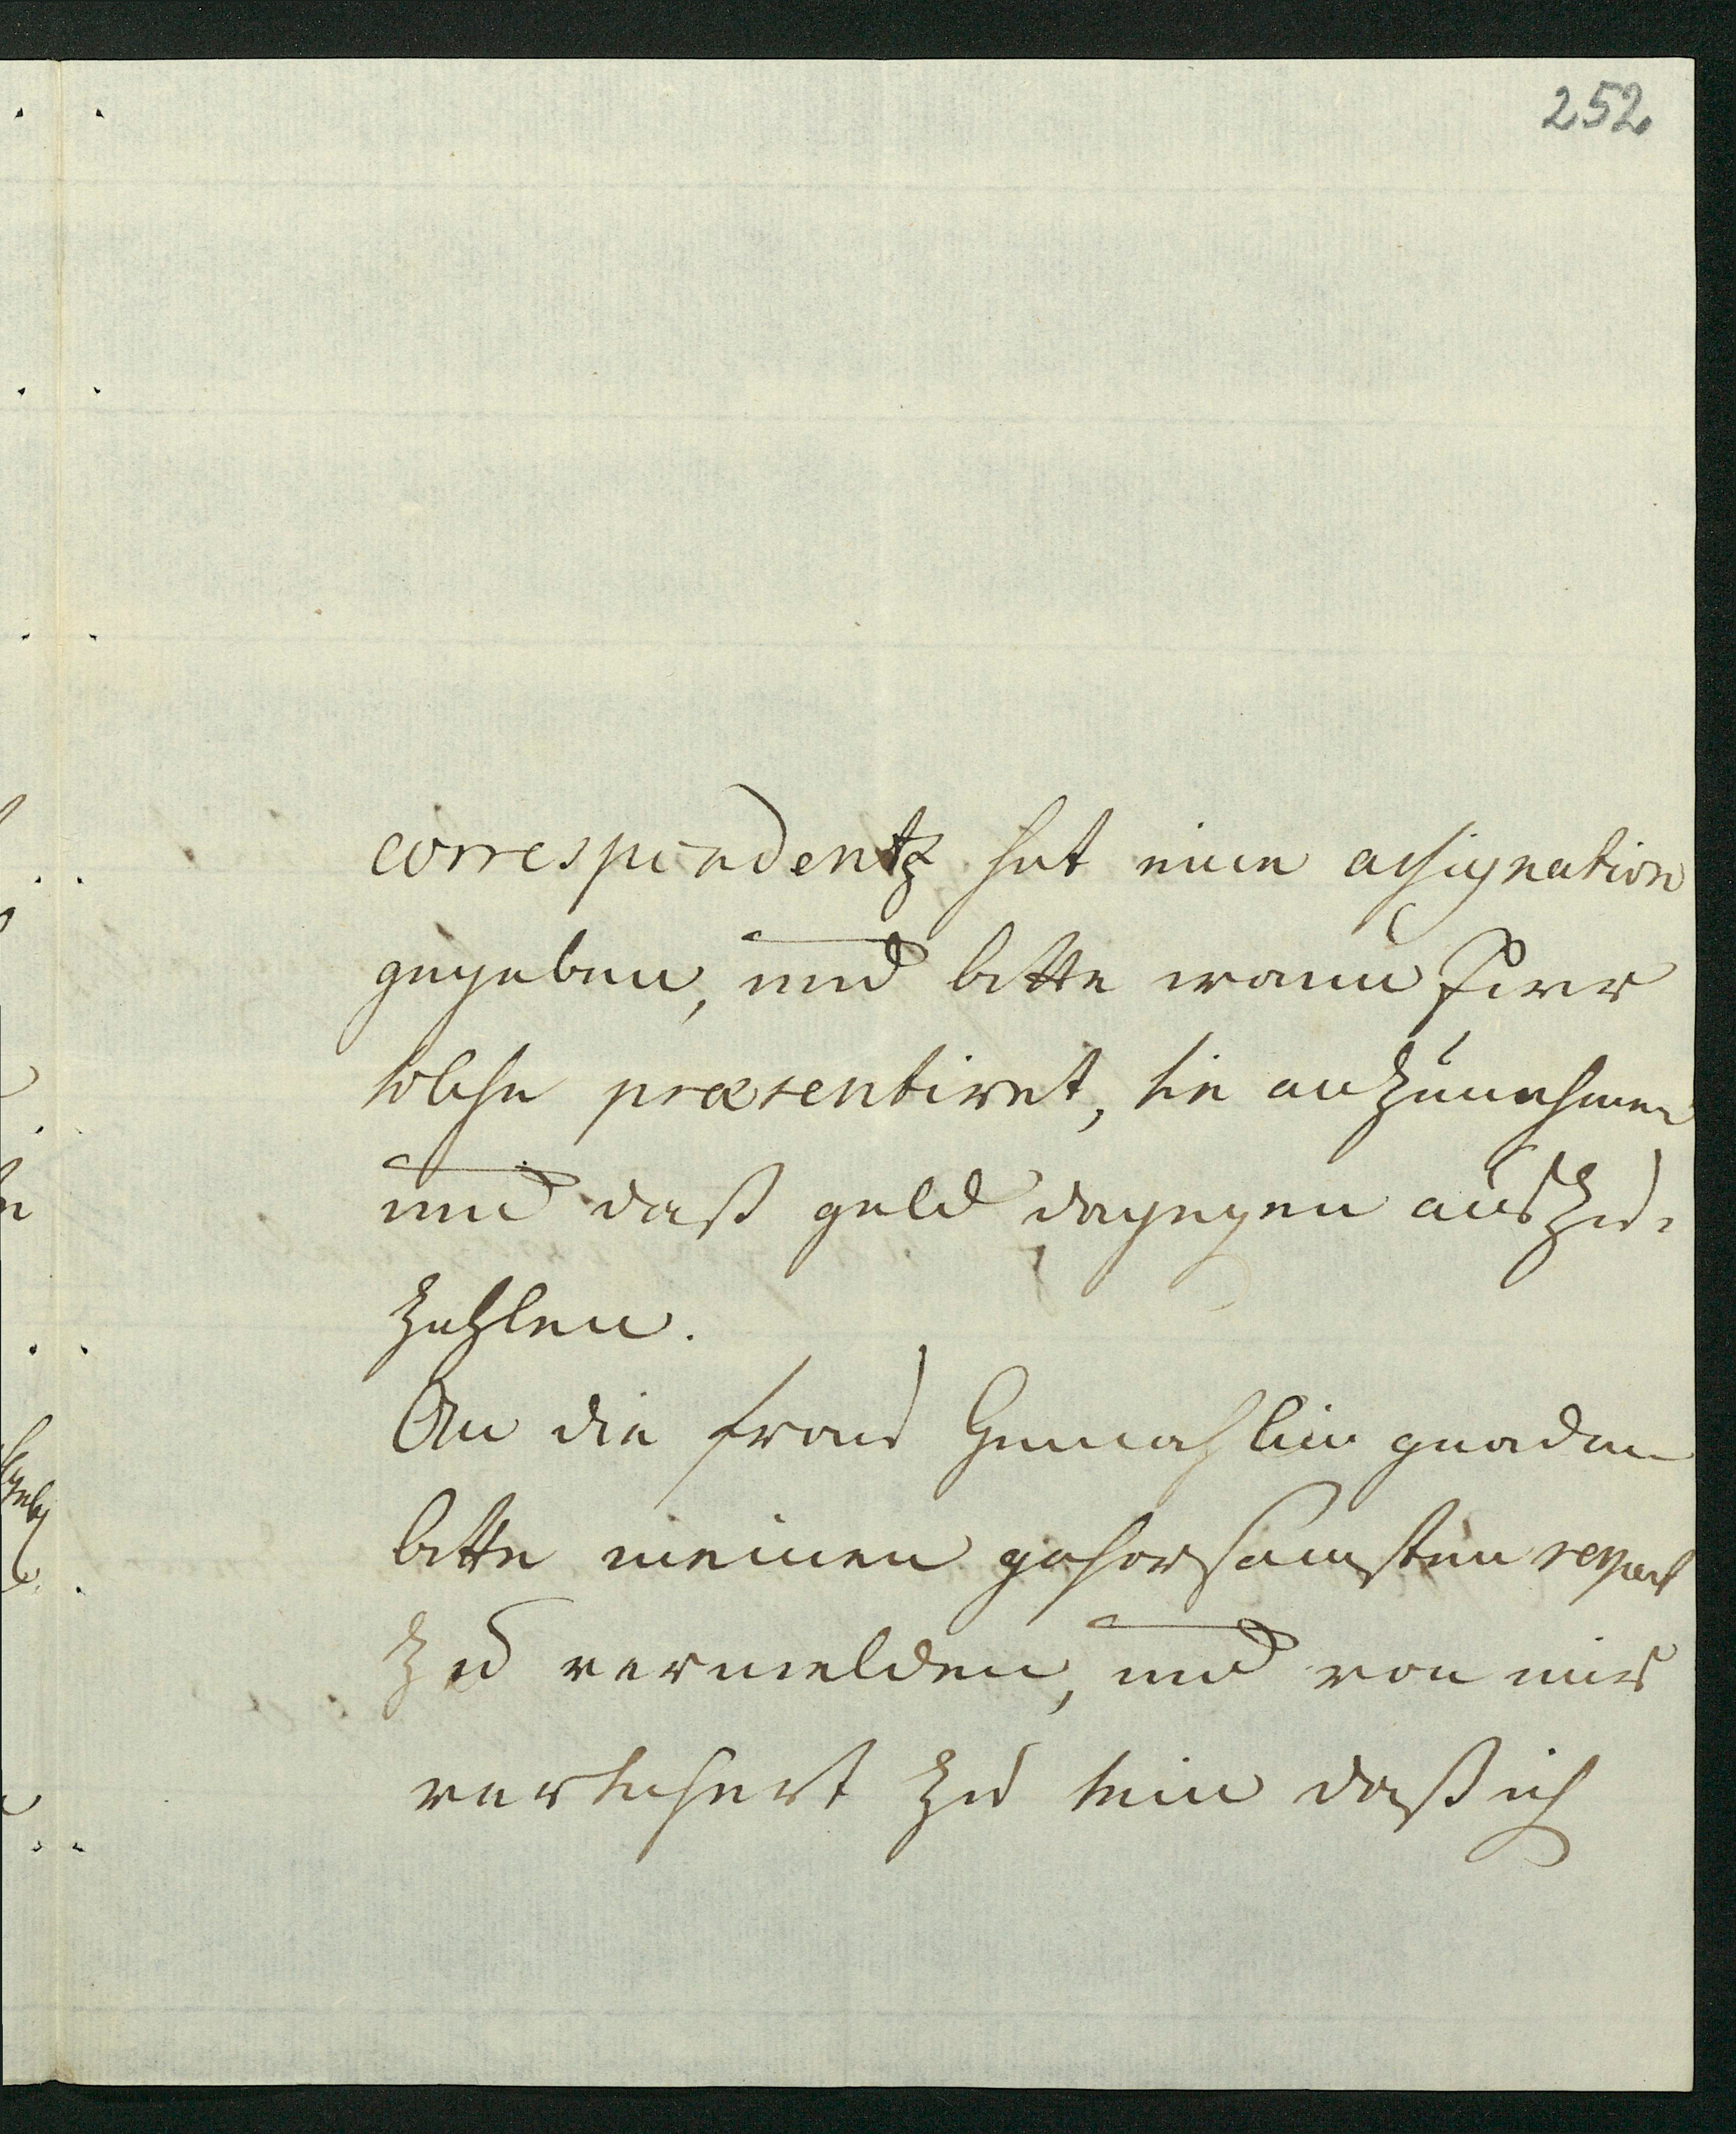 252
correspondentz hat eine assignation
gegeben, und bitte wann
solche præsentiret, sie anzunehmen
und daß geld dagegen auszu-
zahlen.
An die frau Gemahlin gnaden
bitte meinen gehorsamsten respect
zu vermelden, und von mir
versichert zu sein daß ich